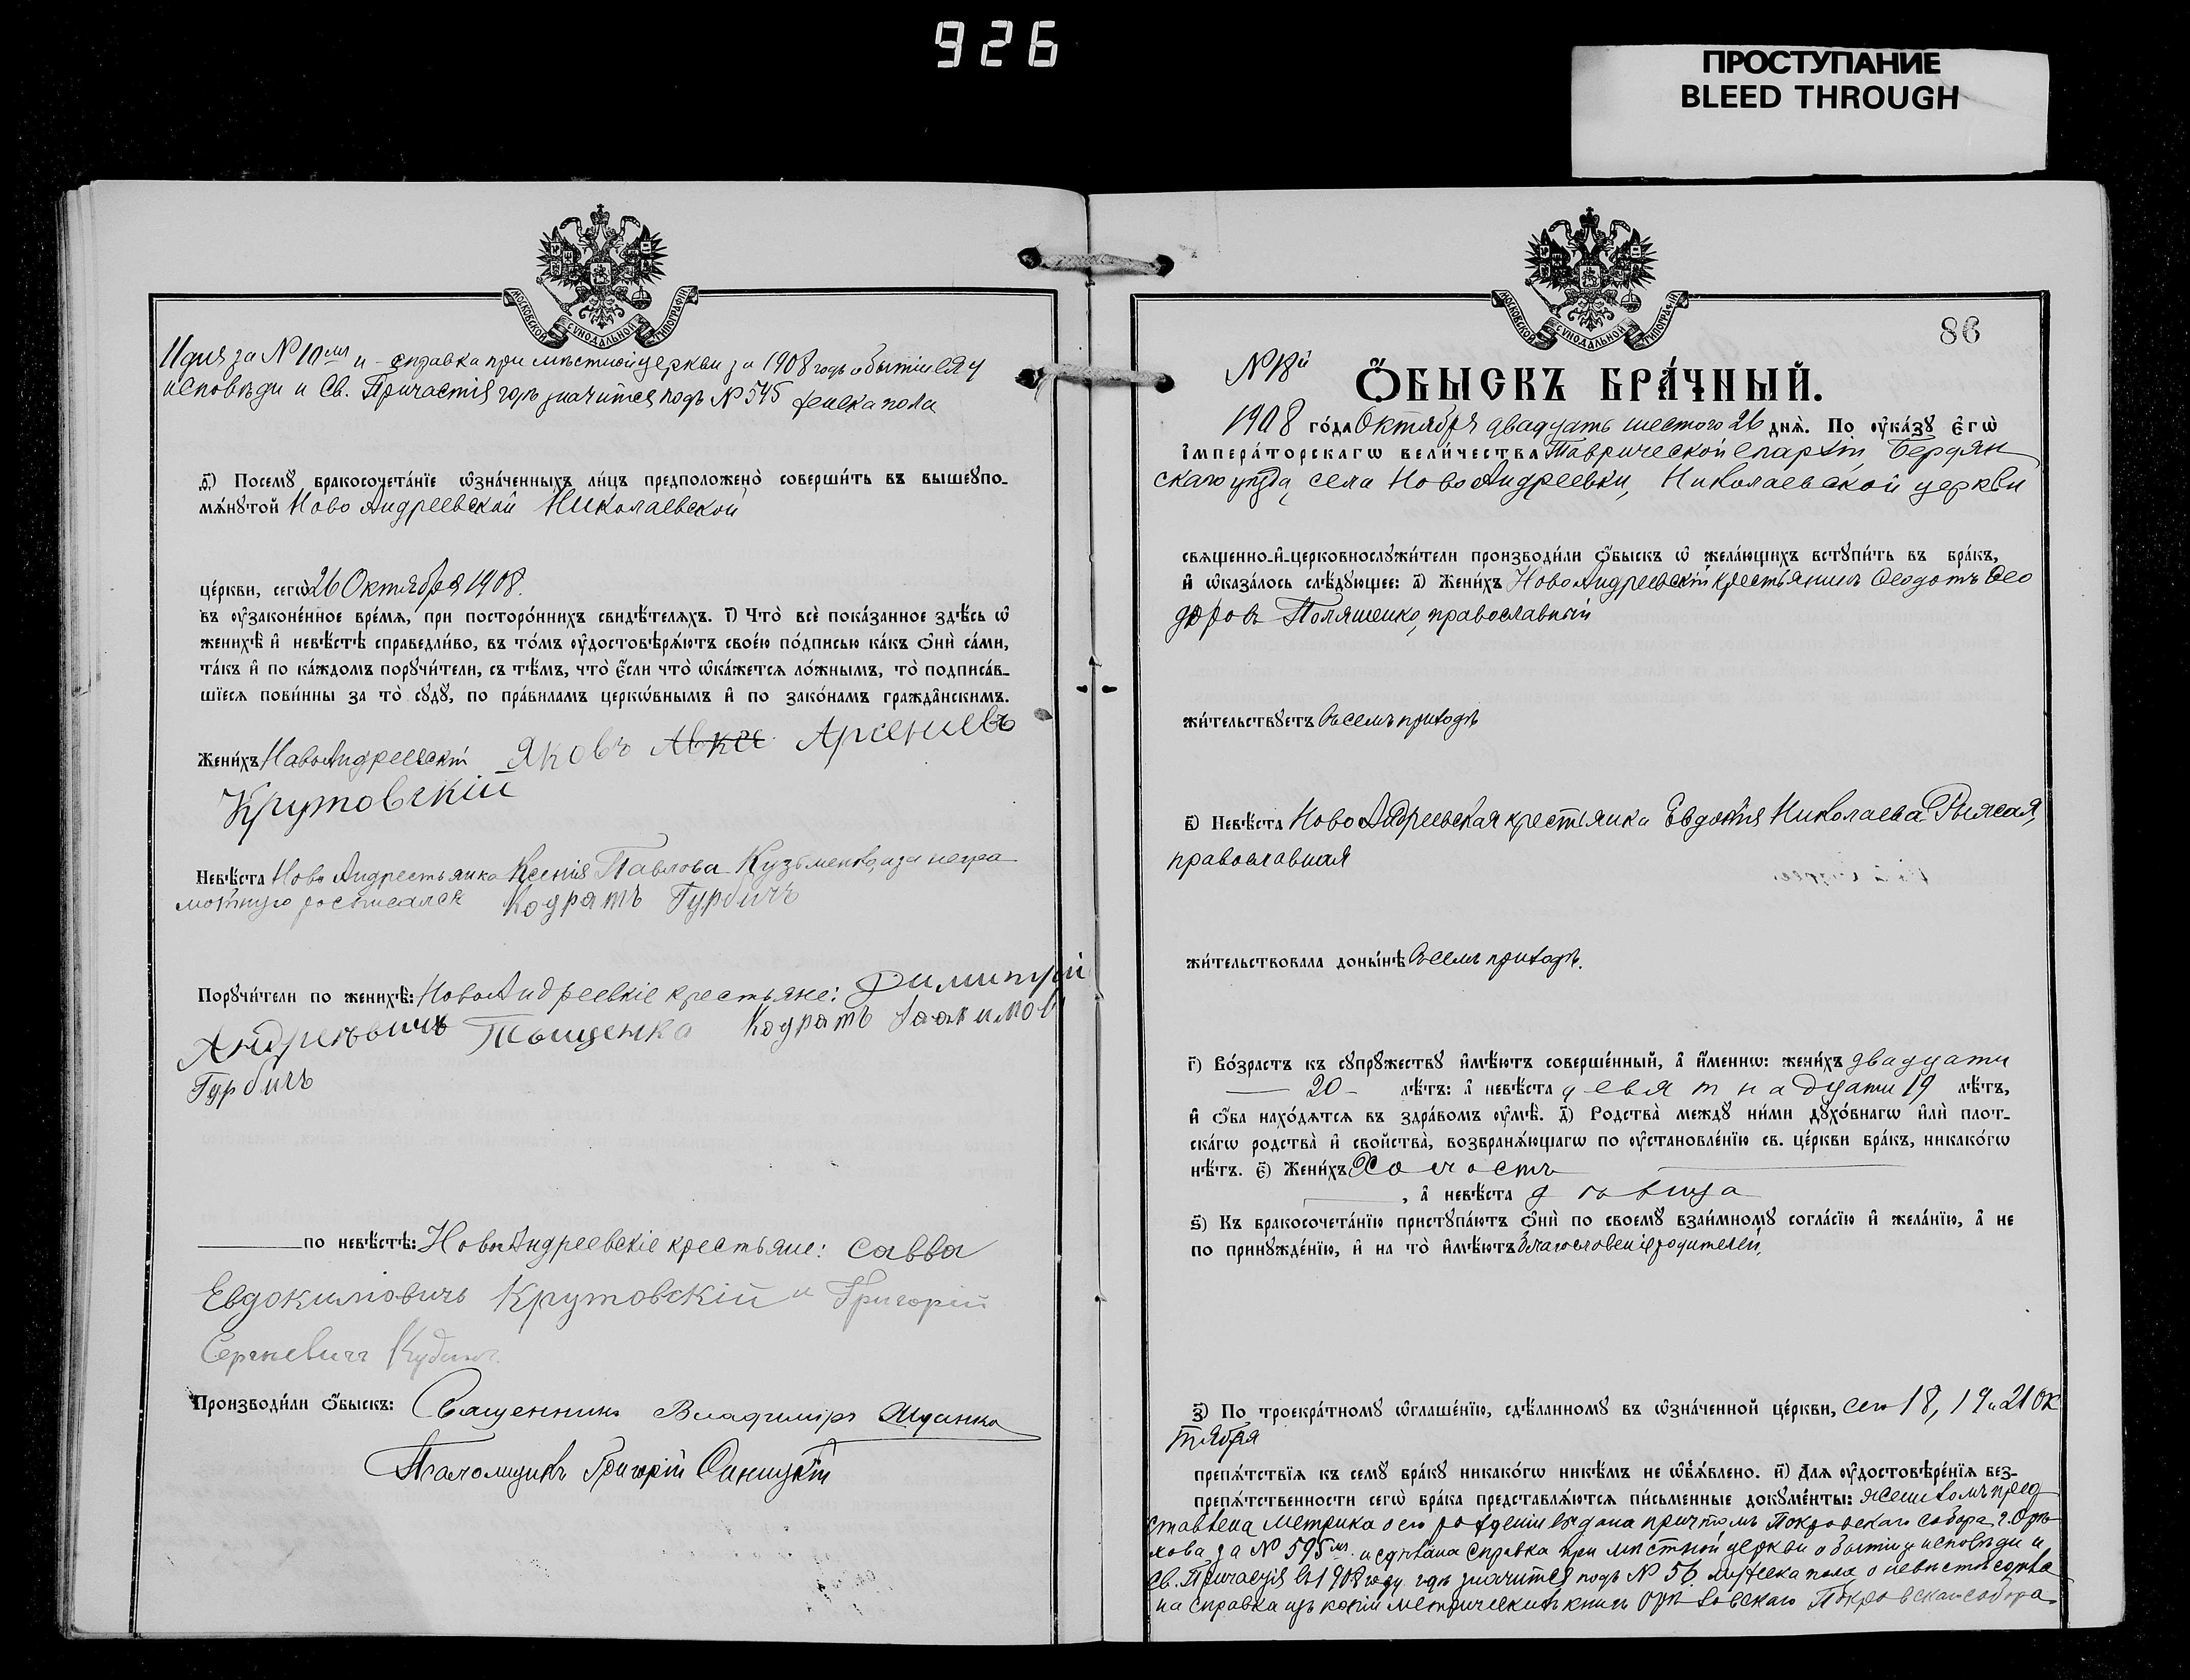 926
ПРОСТУПАНИЕ
BLEED THROUGH
МОСКОВСКОЙ СѴНОДАЛЬНОЙ ТИПОГРАФІИ
за № 10 и справка при мѣстной церкви за 1908 годъ о бытіи ея у
исповѣди и Св. Причастія гдѣ значится подъ № 545 женска пола
д҃) Посемꙋ бракосочета́нїе ѡ҆зна́ченныхъ ли́цъ предположено̀ соверши́ть въ вышеꙋпо-
мѧ́нꙋтой Ново Андреевской Николаевской
це́ркви, сегѡ̀ 26 Октября 1908.
въ ᲂу҆законе́нное вре́мѧ, при посторо́ннихъ свидѣ́телѧхъ. і҃) Что̀ всѐ пока́занное здѣ́сь ѡ҆
женихѣ̀ и҆ невѣ́стѣ справедли́во, въ то́мъ ᲂу҆достовѣрѧ́ютъ свое́ю по́дписью ка́къ ѻ҆нѝ са́ми,
та́къ и҆ по ка́ждомъ порꙋчи́тели, съ тѣ́мъ, что̀ є҆́сли что̀ ѡ҆ка́жется ло́жнымъ, то̀ подписа́в-
шїеся пови́нны за то̀ сꙋдꙋ̀, по пра́виламъ церкѡ́внымъ и҆ по зако́намъ гражда́нскимъ.
Жени́хъ НовоАндреевскій Яковъ Авксе Арсеніевъ
Крутовскій
Невѣ́ста Ново Андрестьянка Ксенія Павлова Кузьменко, а за негра
мотную росписался Кодратъ Гурбичъ
Порꙋчи́тели по женихѣ̀: НовоАндреевкіе крестьяне: Димитрій
Андреевичъ Тыщенко Кодратъ Іоакимов
Гурбичъ
по невѣ́стѣ: НовоАндреевскіе крестьяне: Савва
Евдокимовичъ Крутовскій и Григорій
Сергѣевичъ
Производи́ли ѻ҆́быскъ: Священникъ Владиміръ
Псаломщикъ Григорій Синицкій
МОСКОВСКОЙ СѴНОДАЛЬНОЙ ТИПОГРАФІИ
86
№ 18й
Ѻ҆́БЫСКЪ БРА́ЧНЫЙ.
1908 го́да Октября двадцать шестого 26 днѧ̀. По ᲂу҆ка́зꙋ Є҆гѡ̀
і҆мпера́торскагѡ вели́чества Таврической епархіи, Бердян
скаго уѣзда, села НовоАндреевки, Николаевской церкви
свѧщенно-и҆-церковнослꙋжи́тели производи́ли ѻ҆́быскъ ѡ҆ жела́ющихъ встꙋпи́ть въ бра́къ,
и҆ ѡ҆каза́лось слѣ́дꙋющее: а҃) Жени́хъ НовоАндреевскій крестьянинъ Ѳеодотъ Ѳео
доровъ Поляшенко, православный
жи́тельствꙋетъ въ семъ приходѣ
в҃) Невѣ́ста НовоАндреевская крестьянка Евдокія Николаева
православная
жи́тельствовала доны́нѣ въ семъ приходѣ.
г҃) Во́зрастъ къ сꙋпрꙋ́жествꙋ и҆мѣ́ютъ соверше́нный, а҆ и҆́меннѡ: жени́хъ двадцати
20 лѣ́тъ: а҆ невѣ́ста девятнадцати 19 лѣ́тъ,
и҆ ѻ҆́ба нахо́дѧтсѧ въ здра́вомъ ᲂу҆мѣ̀. д҃) Родства̀ междꙋ ни́ми дꙋхо́внагѡ и҆лѝ плот-
ска́гѡ родства̀ и҆ сво́йства, возбранѧ́ющагѡ по ᲂу҆становле́нїю св. це́ркви бра́къ, никако́гѡ
нѣ́тъ. є҃) Жени́хъ Холостъ
, а҆ невѣ́ста дѣвица
ѕ҃) Къ бракосочета́нїю пристꙋпа́ютъ ѻ҆нѝ по своемꙋ̀ взаи́мномꙋ согла́сїю и҆ жела́нїю, а҆ не
по принꙋжде́нїю, и҆ на то̀ и҆мѣ́ютъ благословеніе родителей.
з҃) По троекра́тномꙋ ѡ҆глаше́нїю, сдѣ́ланномꙋ въ ѡ҆зна́ченной це́ркви, сего 18, 19 и 21 Ок
тября
препѧ́тствїѧ къ семꙋ̀ бра́кꙋ никако́гѡ никѣ́мъ не ѡ҆б̾ѧ́влено. и҃) Длѧ ᲂу҆достовѣре́нїѧ без-
препѧ́тственности сегѡ̀ бра́ка представлѧ́ютсѧ пи́сьменные докꙋме́нты: женихомъ пред
ставлена метрика о его рожденіи выдана причтомъ Покровскаго собора г. Орѣ
хова за № 595 и сдѣлана справка при мѣстной церкви о бытіи у исповѣди и
Св. Причастія въ 1908 году гдѣ значится подъ № 56 мужска пола, о невѣстѣ сдѣла
на справка изъ копіи метрическихъ книгъ Орѣховскаго Покровскаго собора.